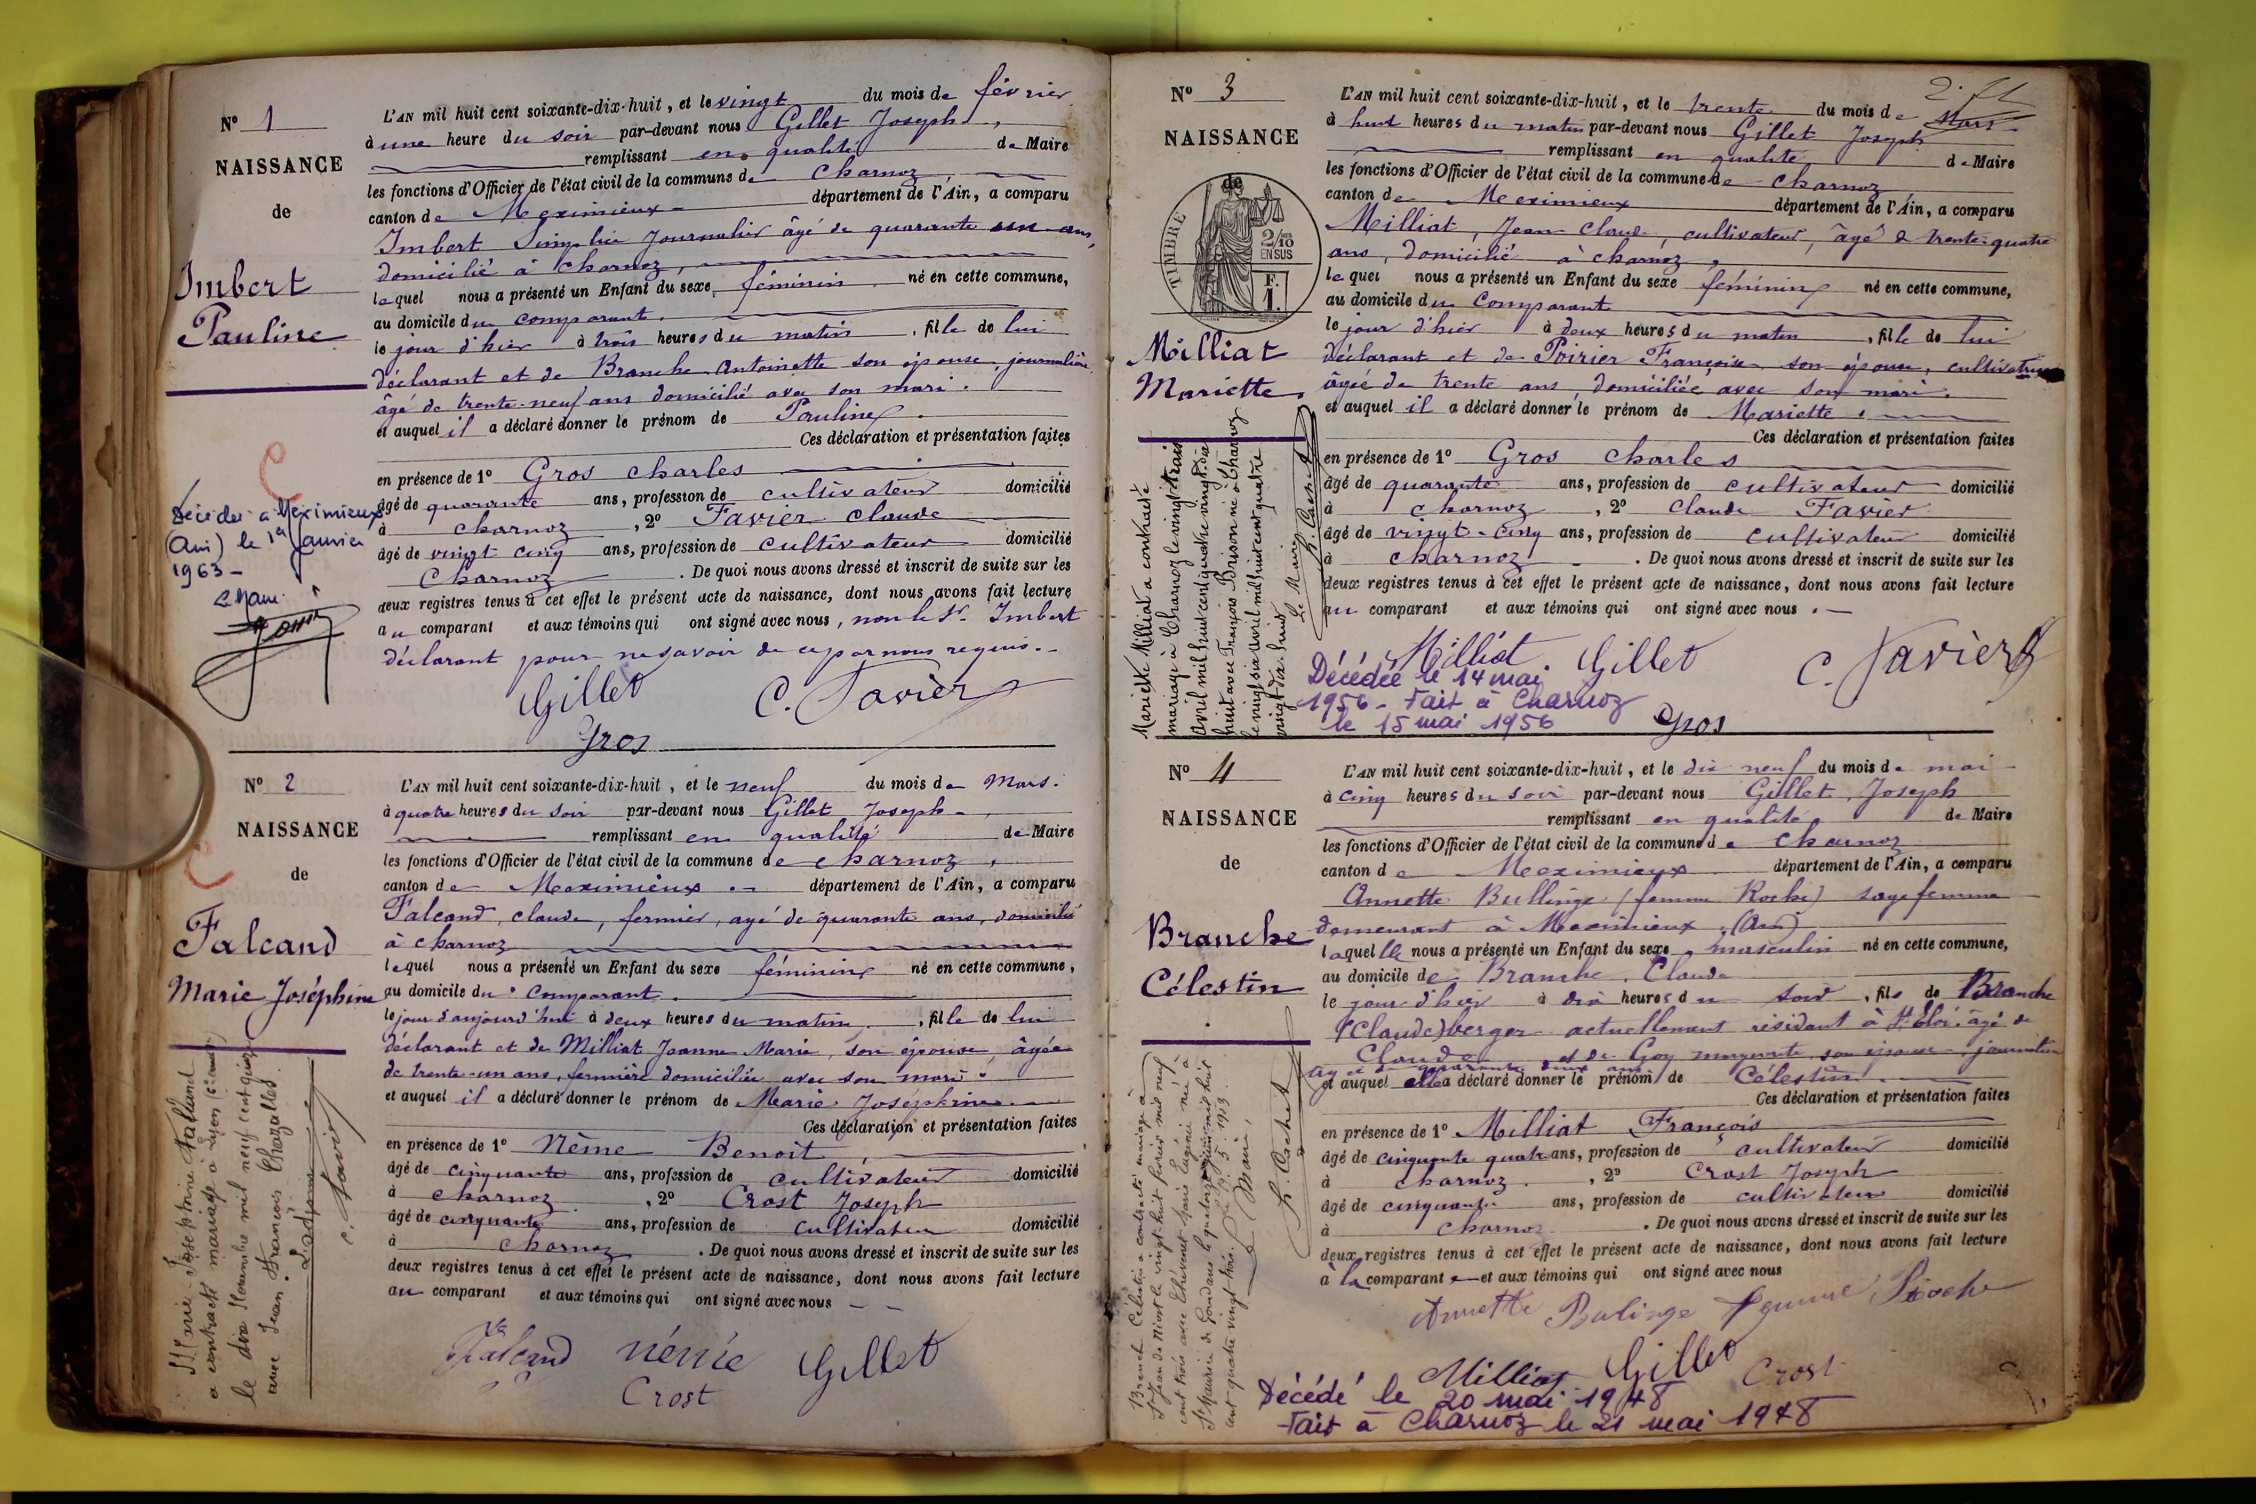 N° 1
NAISSANCE
de
Imbert
Pauline
L'AN mil huit cent soixante-dix-huit, et le vingt du mois de février
à une heure du soir par-devant nous Gillet Joseph,
remplissant en qualité de Maire
les fonctions d'Officier de l'état civil de la commune de Charnoz
canton de Meximieux département de l'Ain, a comparu
Imbert Simplice journalier âgé de quarante un ans,
domicilié à Charnoz,
lequel nous a présenté un Enfant du sexe féminin né en cette commune,
au domicile du comparant.
le jour d'hier à trois heures du matin, fille de lui
déclarant et de Branche Antoinette son épouse, journalière
âgé de trente-neuf ans domicilié avec son mari.
et auquel il a déclaré donner le prénom de Pauline.
Ces déclaration et présentation faites
en présence de 1° Gros Charles
âgé de quarante ans, profession de cultivateur domicilié
à Charnoz, 2° Favier Claude
âgé de vingt cinq ans, profession de cultivateur domicilié
Charnoz. De quoi nous avons dressé et inscrit de suite sur les
deux registres tenus à cet effet le présent acte de naissance, dont nous avons fait lecture
au comparant et aux témoins qui ont signé avec nous, non le Sr Imbert
déclarant pour ne savoir de ce par nous requis.
Gillet C. Favier
Gros
C
Décédée à Meximieux
(Ain) le 1er Janvier
1963 -
Le Maire
N° 2
NAISSANCE
de
C
Falcand
Marie Joséphine
L'AN mil huit cent soixante-dix-huit, et le neuf du mois de Mars.
à quatre heures du soir par-devant nous Gillet Joseph,
remplissant en qualité de Maire
les fonctions d'Officier de l'état civil de la commune de Charnoz,
canton de Meximieux département de l'Ain, a comparu
Falcand, Claude, fermier, agé de quarante ans, domicilié
à Charnoz
lequel nous a présenté un Enfant du sexe féminin né en cette commune,
au domicile du comparant.
le jour d'aujourd'hui à deux heures du matin, fille de lui
déclarant et de Milliat Jeanne Marie, son épouse, âgée
de trente-un ans, fermière domiciliée avec son mari.
et auquel il a déclaré donner le prénom de Marie Joséphine.
Ces déclaration et présentation faites
en présence de 1° Nême Benoit,
âgé de cinquante ans, profession de cultivateur domicilié
à Charnoz, 2° Crost Joseph
âgé de cinquante ans, profession de cultivateur domicilié
à Charnoz. De quoi nous avons dressé et inscrit de suite sur les
deux registres tenus à cet effet le présent acte de naissance, dont nous avons fait lecture
au comparant et aux témoins qui ont signé avec nous
Falcand néme Gillet
Crost
Marie Joséphine Falcand
a contracté mariage à Lyon
le dix Novembre mil neuf cent quinze
avec Jean François Chazalles
L'adjoint
C. Favier
N° 3
NAISSANCE
de
TIMBRE
2/10
EN SUS
F.
1.
Milliat
Mariette
L'AN mil huit cent soixante-dix-huit, et le trente du mois de Mars
à huit heures du matin par-devant nous Gillet Joseph
remplissant en qualité de Maire
les fonctions d'Officier de l'état civil de la commune de Charnoz
canton de Meximieux département de l'Ain, a comparu
Milliat, Jean Claude, cultivateur, âgé de trente-quatre
ans, domicilié à Charnoz,
lequel nous a présenté un Enfant du sexe féminin né en cette commune,
au domicile du comparant
le jour d'hier à deux heures du matin, fille de lui
déclarant et de Poirier Françoise, son épouse, cultivatrice
âgée de trente ans, domiciliée avec son mari.
et auquel il a déclaré donner le prénom de Mariette.
Ces déclaration et présentation faites
en présence de 1° Gros Charles
âgé de quarante ans, profession de cultivateur domicilié
à Charnoz, 2° Claude Favier
âgé de vingt-cinq ans, profession de cultivateur domicilié
à Charnoz. De quoi nous avons dressé et inscrit de suite sur les
deux registres tenus à cet effet le présent acte de naissance, dont nous avons fait lecture
au comparant et aux témoins qui ont signé avec nous.
Milliat. Gillet C. Favier
Gros
Décédée le 14 mai
1956 - Fait à Charnoz
le 15 mai 1956
Mariette Milliat a contracté
mariage à Charnoz le vingt trois
avril mil huit cent quatre vingt dix
huit avec François Brison né à Charnoz
le vingt six avril mil huit cent quatre
vingt dix huit
Le Maire
N° 4
NAISSANCE
de
Branche
Célestin
L'AN mil huit cent soixante-dix-huit, et le dix neuf du mois de mai
à cinq heures du soir par-devant nous Gillet, Joseph
remplissant en qualité de Maire
les fonctions d'Officier de l'état civil de la commune de Charnoz
canton de Meximieux département de l'Ain, a comparu
Annette Bullinge (femme Roche) sage femme
demeurant à Meximieux (Ain)
laquelle nous a présenté un Enfant du sexe masculin né en cette commune,
au domicile de Branche, Claude
le jour d'hier à dix heures du soir, fils de Branche
(Claude) berger actuellement résidant à St Eloi, âgé de
et de Goy marguerite son épouse journalière
et auquel elle a déclaré donner le prénom de Célestin
Ces déclaration et présentation faites
en présence de 1° Milliat François
âgé de cinquante quatre ans, profession de cultivateur domicilié
à Charnoz, 2° Crost Joseph
âgé de cinquante ans, profession de cultivateur domicilié
à Charnoz. De quoi nous avons dressé et inscrit de suite sur les
deux registres tenus à cet effet le présent acte de naissance, dont nous avons fait lecture
à la comparante et aux témoins qui ont signé avec nous
Annette Bulinge femme Roche
Milliat Gillet Crost
Décédé le 20 mai 1948
Fait à Charnoz le 21 mai 1948